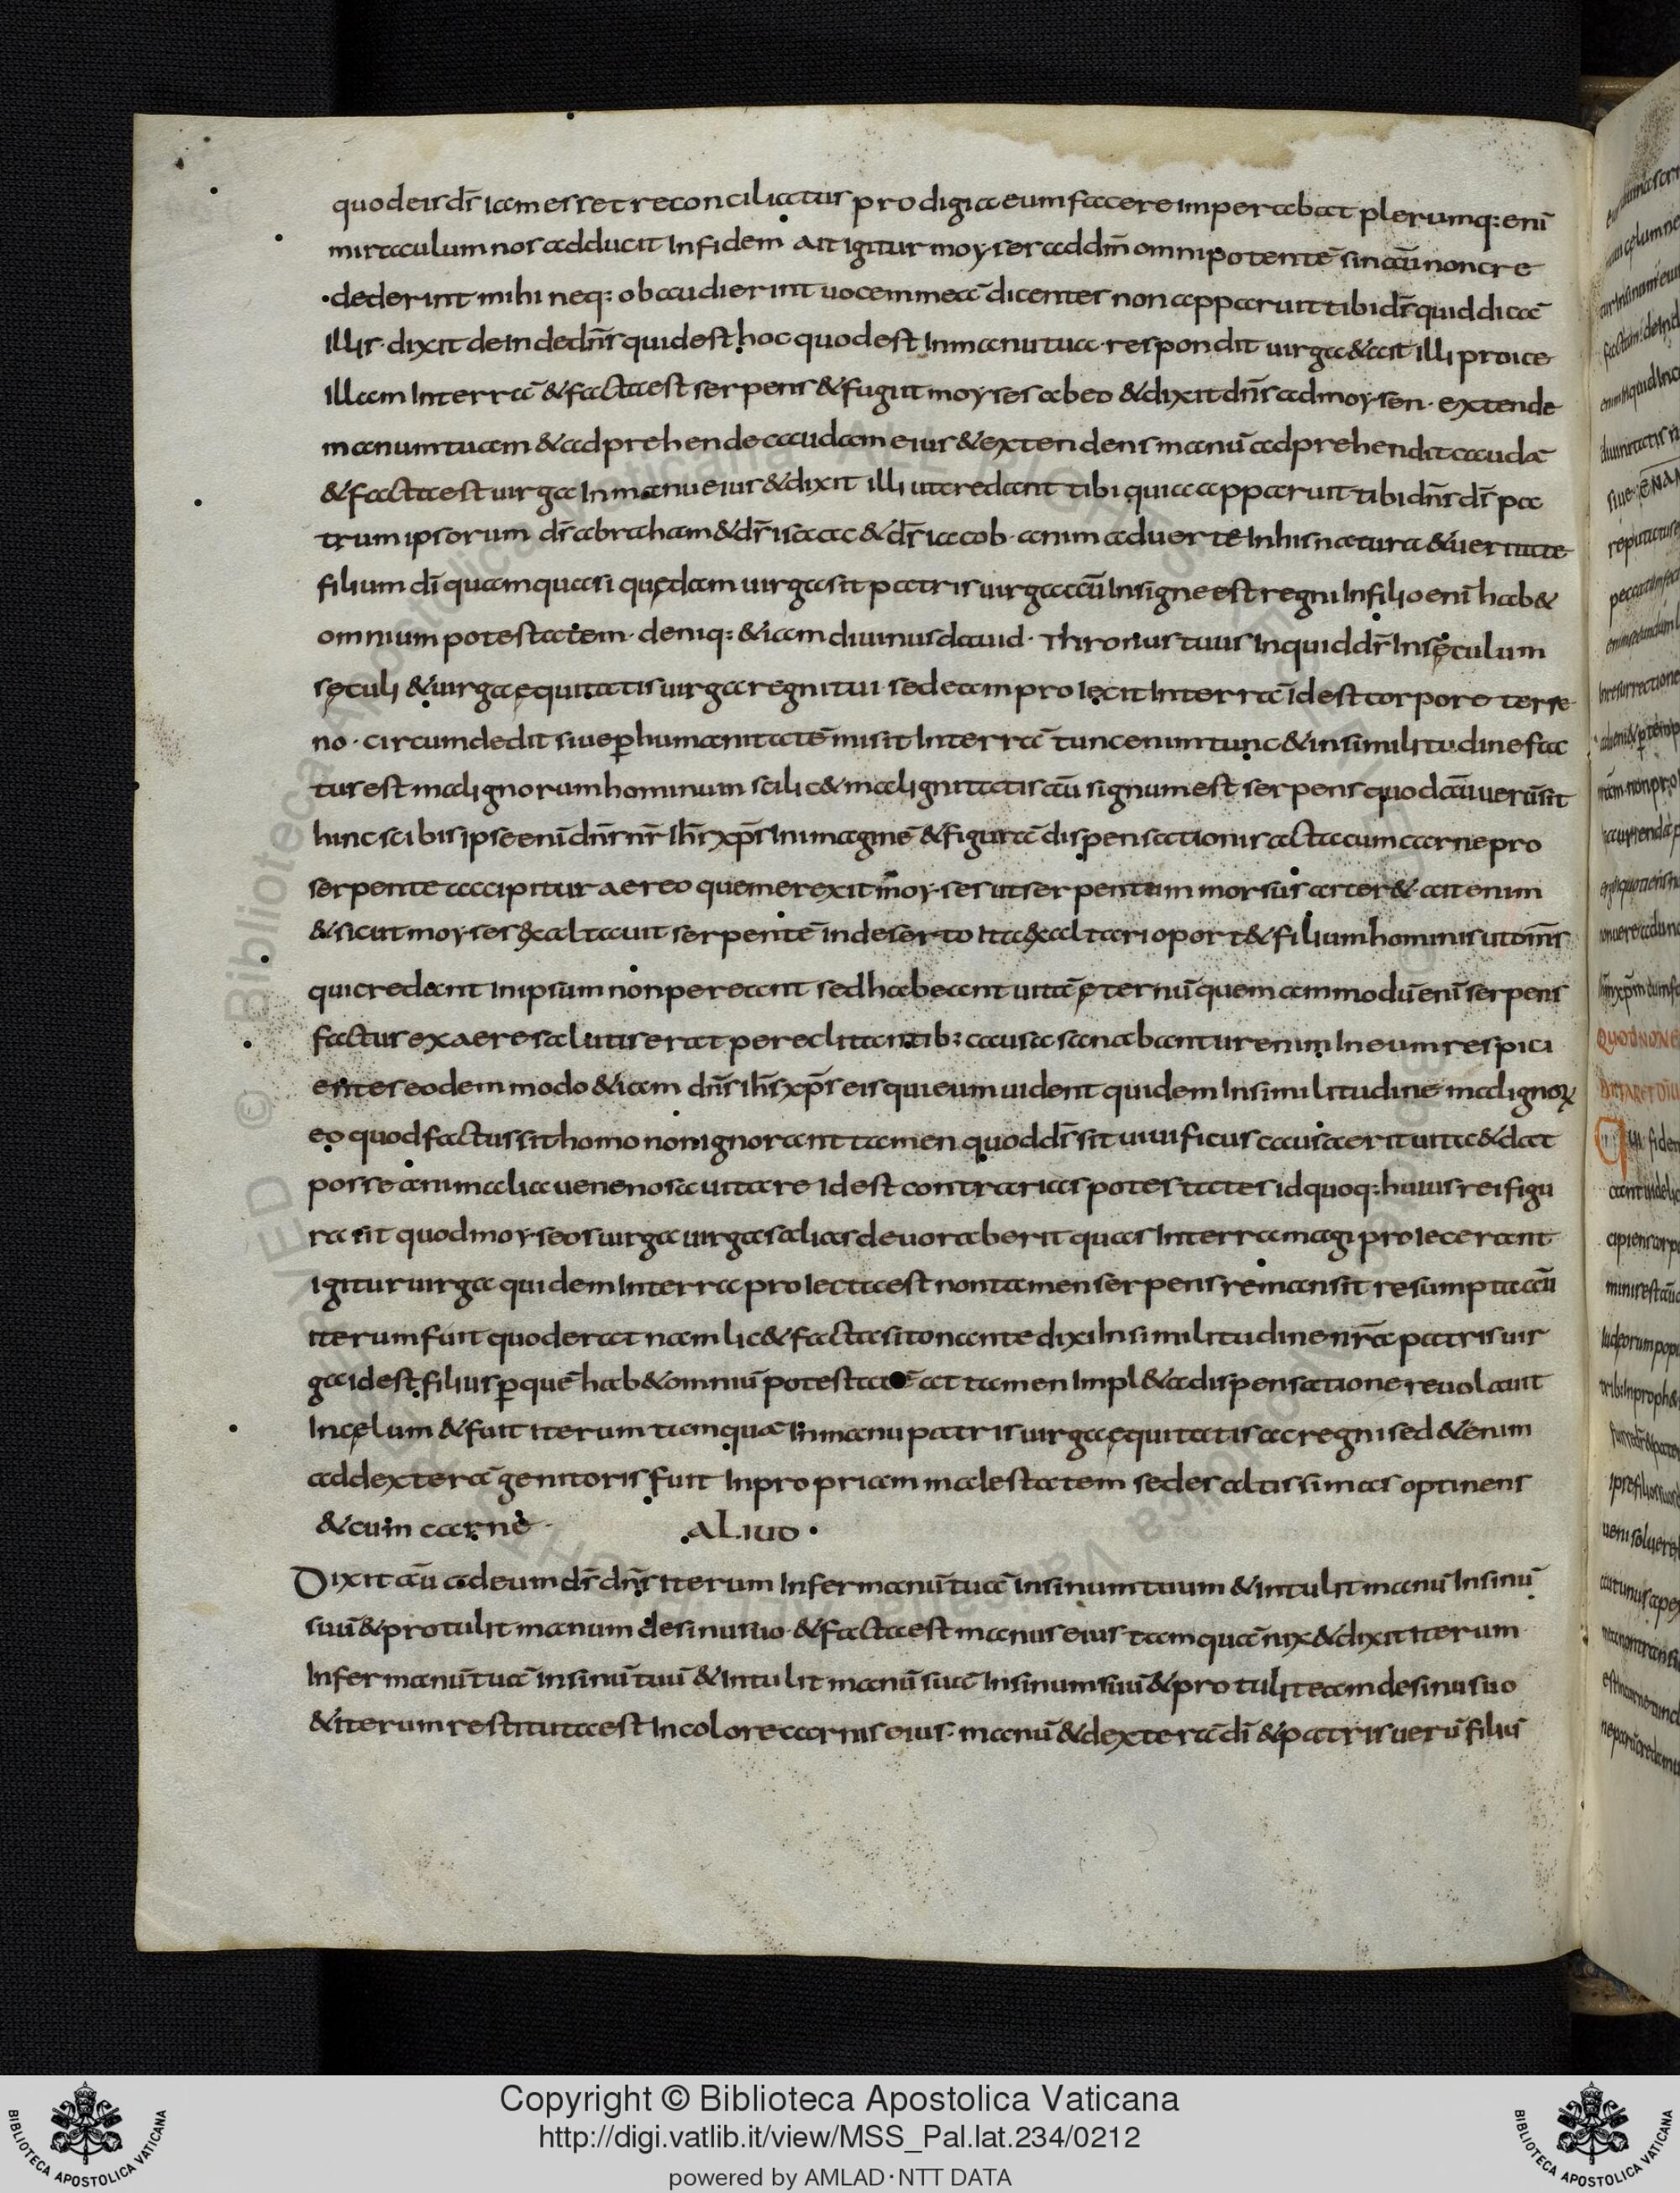 quodeis dr̄ iam esset reconciliatus prodigia eum facere imperabat plerumq: eni᷄
miraculum nos adducit Infidem ait igitur moyses ad dm̄ omnipotentē sin aū non cre
dederint mihi neq: obaudierint uocem meā dicentes non apparuit tibi dr̄ quid dicā
Illis· dixit deinde dn̄s quid est hoc quod est Inmanu tua· respondit uirga & ait illi proice
Illam Interrā & facta est serpens & fugiit moyses ab eo & dixit dn̄s ad moysen· extende
manum tuam & adprehende caudam eius & extendens manū adprehendit caudā
& facta est uirga Inmanu eius & dixit illi ut credant tibi quia apparuit tibi dn̄s dr̄ pa
trum ipsorum dr̄ abraham & dr̄ isaac & dr̄ iacob· anim aduerte Inhis natura & uertute
filium dī quam quasi quędam uirga sit patris uirga aū Insigne est regni Infilio enī hab&
omnium potestatem· deniq: & iam diuinus dauid· Thronus tuus Inquid dr̄ Insęculum
sęculi & uirga ęquitatis uirga regni tui· sed eam proiecit Interrā Idest corpore terre
no· circumdedit siue p humanitatē misit Interrā tunc enim tunc & insimilitudine fac
tus est malignorum hominum scilic& malignitatis aū signum est serpens quod aū uerū sit
hinc scibis ipse enī dn̄s nr̄ ih̄s xp̄s Inimaginē & figurā dispensationis acta cum carne pro
serpente accipitur aereo quem erexit moyses ut serpentum morsus arcer& ait enim
& sicut moyses exaltauit serpentē indeserto Ita exaltari oport& filium hominis ut om̄s
qui credant Inipsum non pereant sed habeant uitā ęternū quem ammodū enī serpens
factus ex aere salutis erat pereclitantib; causa sanabantur enim Ineum respici
entes eodem modo & iam dn̄s ih̄s xp̄s eis qui eum uident quidem Insimilitudine malignoꝝ
eo quod factus sit homo non ignorant tamen quod dr̄ sit uiuificus causa erit uitae & dat
posse animalia uenenosa uitare Idest contrarias potestates id quoq: huius rei figu
ra sit quod moyseos uirga uirgas alias deuoraberit quas Interra magi proiecerant
igitur uirga quidem Interra proiecta est non tamen serpens remansit resumpta aū
iterum fuit quod erat nam lic& facta sit on ante dixi Insimilitudine nr̄ā patris uir
ga idest filius p quē hab& omniū potestatē at tamen Impl&a dispensatione reuolauit
Incęlum & fuit iterum tamquā Inmanu patris uirga ęquitatis ac regni sed & enim
ad dexterā genitoris fuit Inpropriam maiestatem sedes altissimas optinens
& cum carne· ALIUD·
Dixit aū ad eum dr̄ dn̄s iterum Infer manū tuā insinum tuum & intulit manū Insinū
suū & protulit manum de sinu suo· & facta est manus eius tamquā nix & dixit iterum
Infer manū tuā insinū tuū & Intulit manū suā Insinum suū & protulit eam de sinu suo
& iterum restituta est Incolore carnis eius· manū & dexterā dī & patris uerū filiū
Copyright © Biblioteca Apostolica Vaticana
http://digi.vatlib.it/view/MSS_Pal.lat.234/0212
powered by AMLAD·NTT DATA